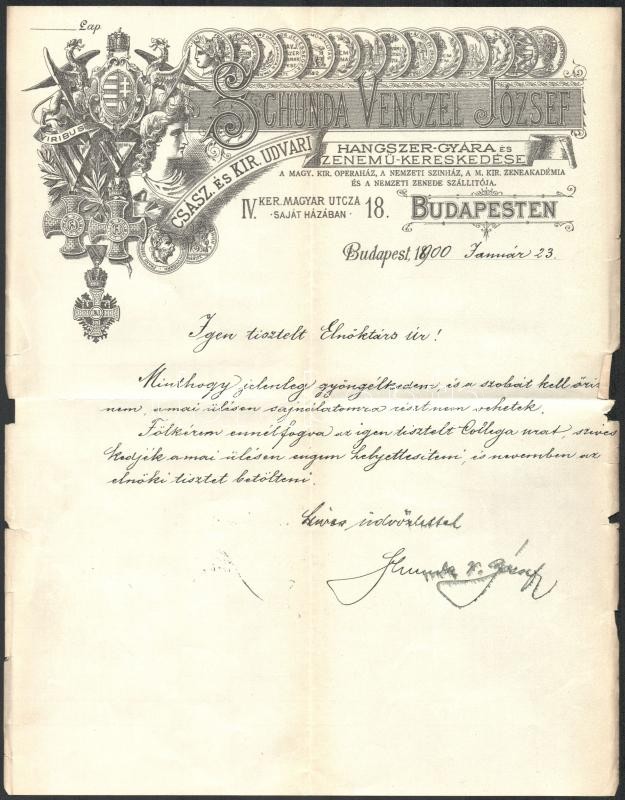 Lap
VIRIBUS
SCHUNDA VENCZEL JÓZSEF
CSÁSZ. ÉS KIR. UDVARI
HANGSZER-GYÁRA ÉS
ZENEMŰ-KERESKEDÉSE
A MAGY. KIR. OPERAHÁZ, A NEMZETI SZINHÁZ, A M. KIR. ZENEAKADÉMIA
ÉS A NEMZETI ZENEDE SZÁLLITÓJA.
IV. KER. MAGYAR UTCZA 18.
SAJÁT HÁZÁBAN
BUDAPESTEN
Budapest, 1900 Január 23.
Igen tisztelt Elnöktárs Úr!
Minthogy jelenleg gyöngélkedem, és a szobát kell őriz
nem, a mai ülésen sajnálatomra részt nem vehetek.
Fölkérem ennélfogva az igen tisztelt Collega urat, szives
kedjék a mai ülésen engem helyettesíteni, és nevemben az
elnöki tisztet betölteni.
Szives üdvözlettel
Schunda V. József